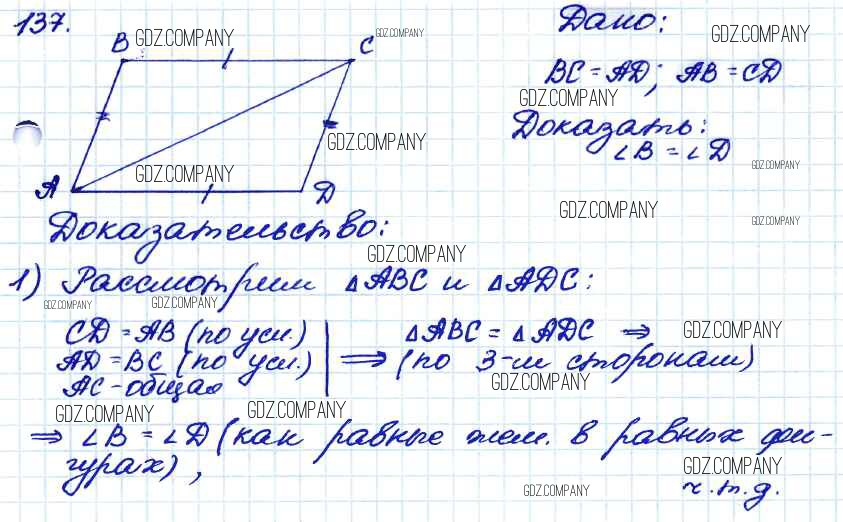 137.
B GDZ.COMPANY
C GDZ.COMPANY
Дано:
GDZ.COMPANY
BC = AD; AB = CD
GDZ.COMPANY
Доказать:
GDZ.COMPANY
∠B = ∠D
GDZ.COMPANY
GDZ.COMPANY
A
D
GDZ.COMPANY
GDZ.COMPANY
Доказательство:
GDZ.COMPANY
1) Рассмотрим △ABC и △ADC:
GDZ.COMPANY
GDZ.COMPANY
CD = AB (по усл.) △ABC = △ADC ⇒
GDZ.COMPANY
AD = BC (по усл.) ⇒ (по 3-м сторонам)
AC - общая
GDZ.COMPANY
GDZ.COMPANY
GDZ.COMPANY
⇒ ∠B = ∠D (как равные элем. в равных фи-
гурах),
GDZ.COMPANY
ч.т.д.
GDZ.COMPANY